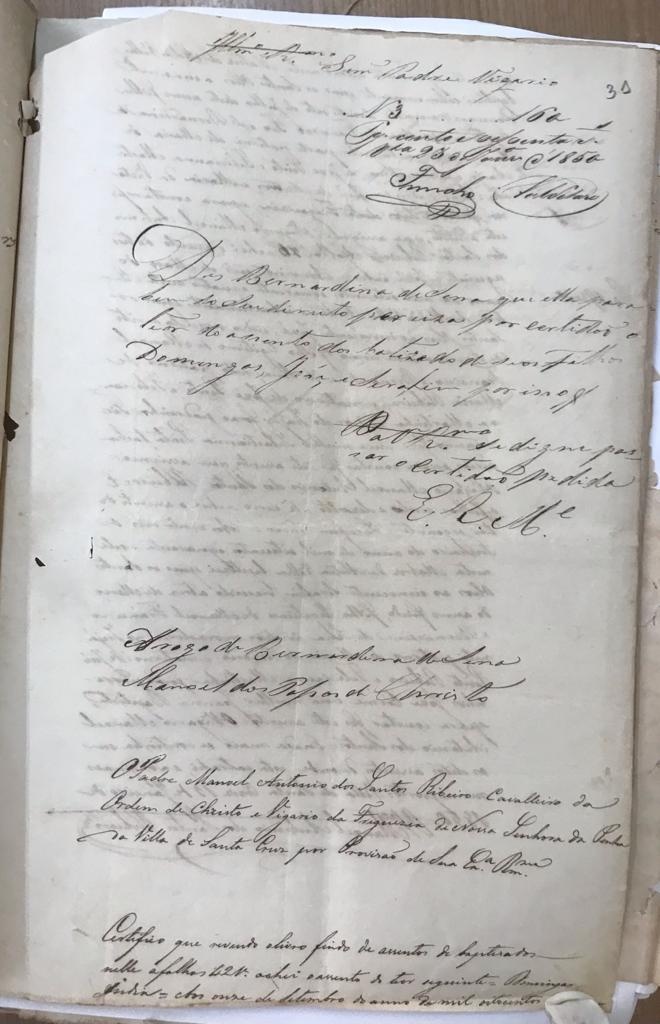 Illmo Rmo Senr Padre Vigario
30
N 3 . . . . 160
Pg cento e sessenta rs
de 1860
Diz Bernardina de Sena que ella para
bem do seu direito percisa por certidão o
teor do assento dos batizado de seos filhos
Domingas, José, e Serafim por isso
P a V. Rma se digne pas-
sar o certidão pedida
E. R. Me
Arogo de Bernardina de Sena
Manoel dos Passos de Christo
O Padre Manoel Antonio dos Santos Ribeiro Cavalleiro da
Ordem de Christo e Vigario da Freguezia de Nossa Senhora da Penha
da Villa de Santa Cruz por Provisão de Sua Exa Rma
Certifico que revendo olivro findo de assentos de baptizados
nelle afolhas 121 achei oassento do teor seguinte = Domingas
Aos onze de Setembro do anno de mil oitocentos